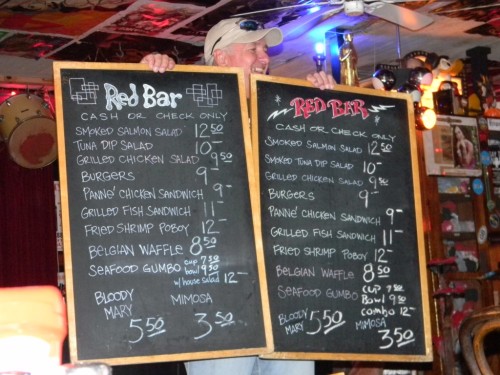 Red Bar
CASH OR CHECK ONLY
SMOKED SALMON SALAD 12 50
TUNA DIP SALAD 10-
GRILLED CHICKEN SALAD 9 50
BURGERS 9-
PANNE' CHICKEN SANDWICH 9-
GRILLED FISH SANDWICH 11-
FRIED SHRIMP POBOY 12-
BELGIAN WAFFLE 8 50
SEAFOOD GUMBO cup 7 50
bowl 9 50
w/ house salad 12-
BLOODY MARY 5 50
MIMOSA 3 50
RED BAR
CASH OR CHECK ONLY
SMOKED SALMON SALAD 12 50
SMOKED TUNA DIP SALAD 10-
GRILLED CHICKEN SALAD 9 50
BURGERS 9-
PANNE' CHICKEN SANDWICH 9-
GRILLED FISH SANDWICH 11-
FRIED SHRIMP POBOY 12-
BELGIAN WAFFLE 8 50
SEAFOOD GUMBO CUP 7 50
Bowl 9 50
combo 12-
BLOODY MARY 5 50
MIMOSA 3 50